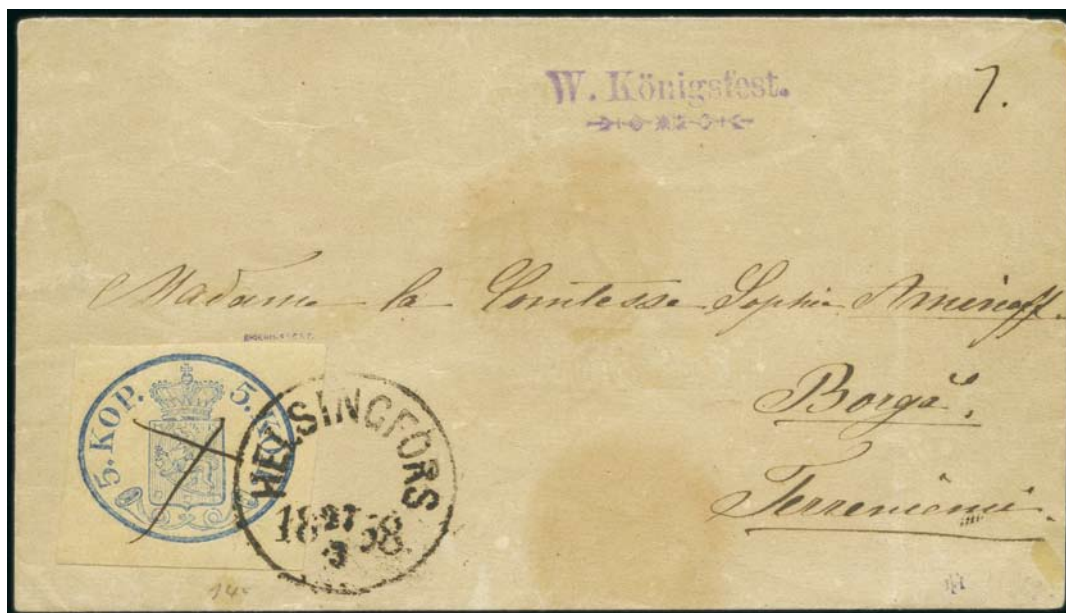 W. Königsfest.
7.
Madame la Comtesse Sophie Armineff.
Borgå.
5. KOP. 5. KOP.
HELSINGFORS
18 27 58.
3
14-